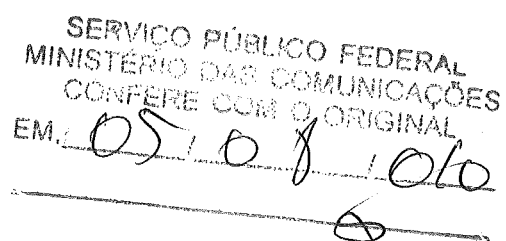 SERVIÇO PÚBLICO FEDERAL
MINISTÉRIO DAS COMUNICAÇÕES
CONFERE COM O ORIGINAL
EM. 05 / 08 / 010